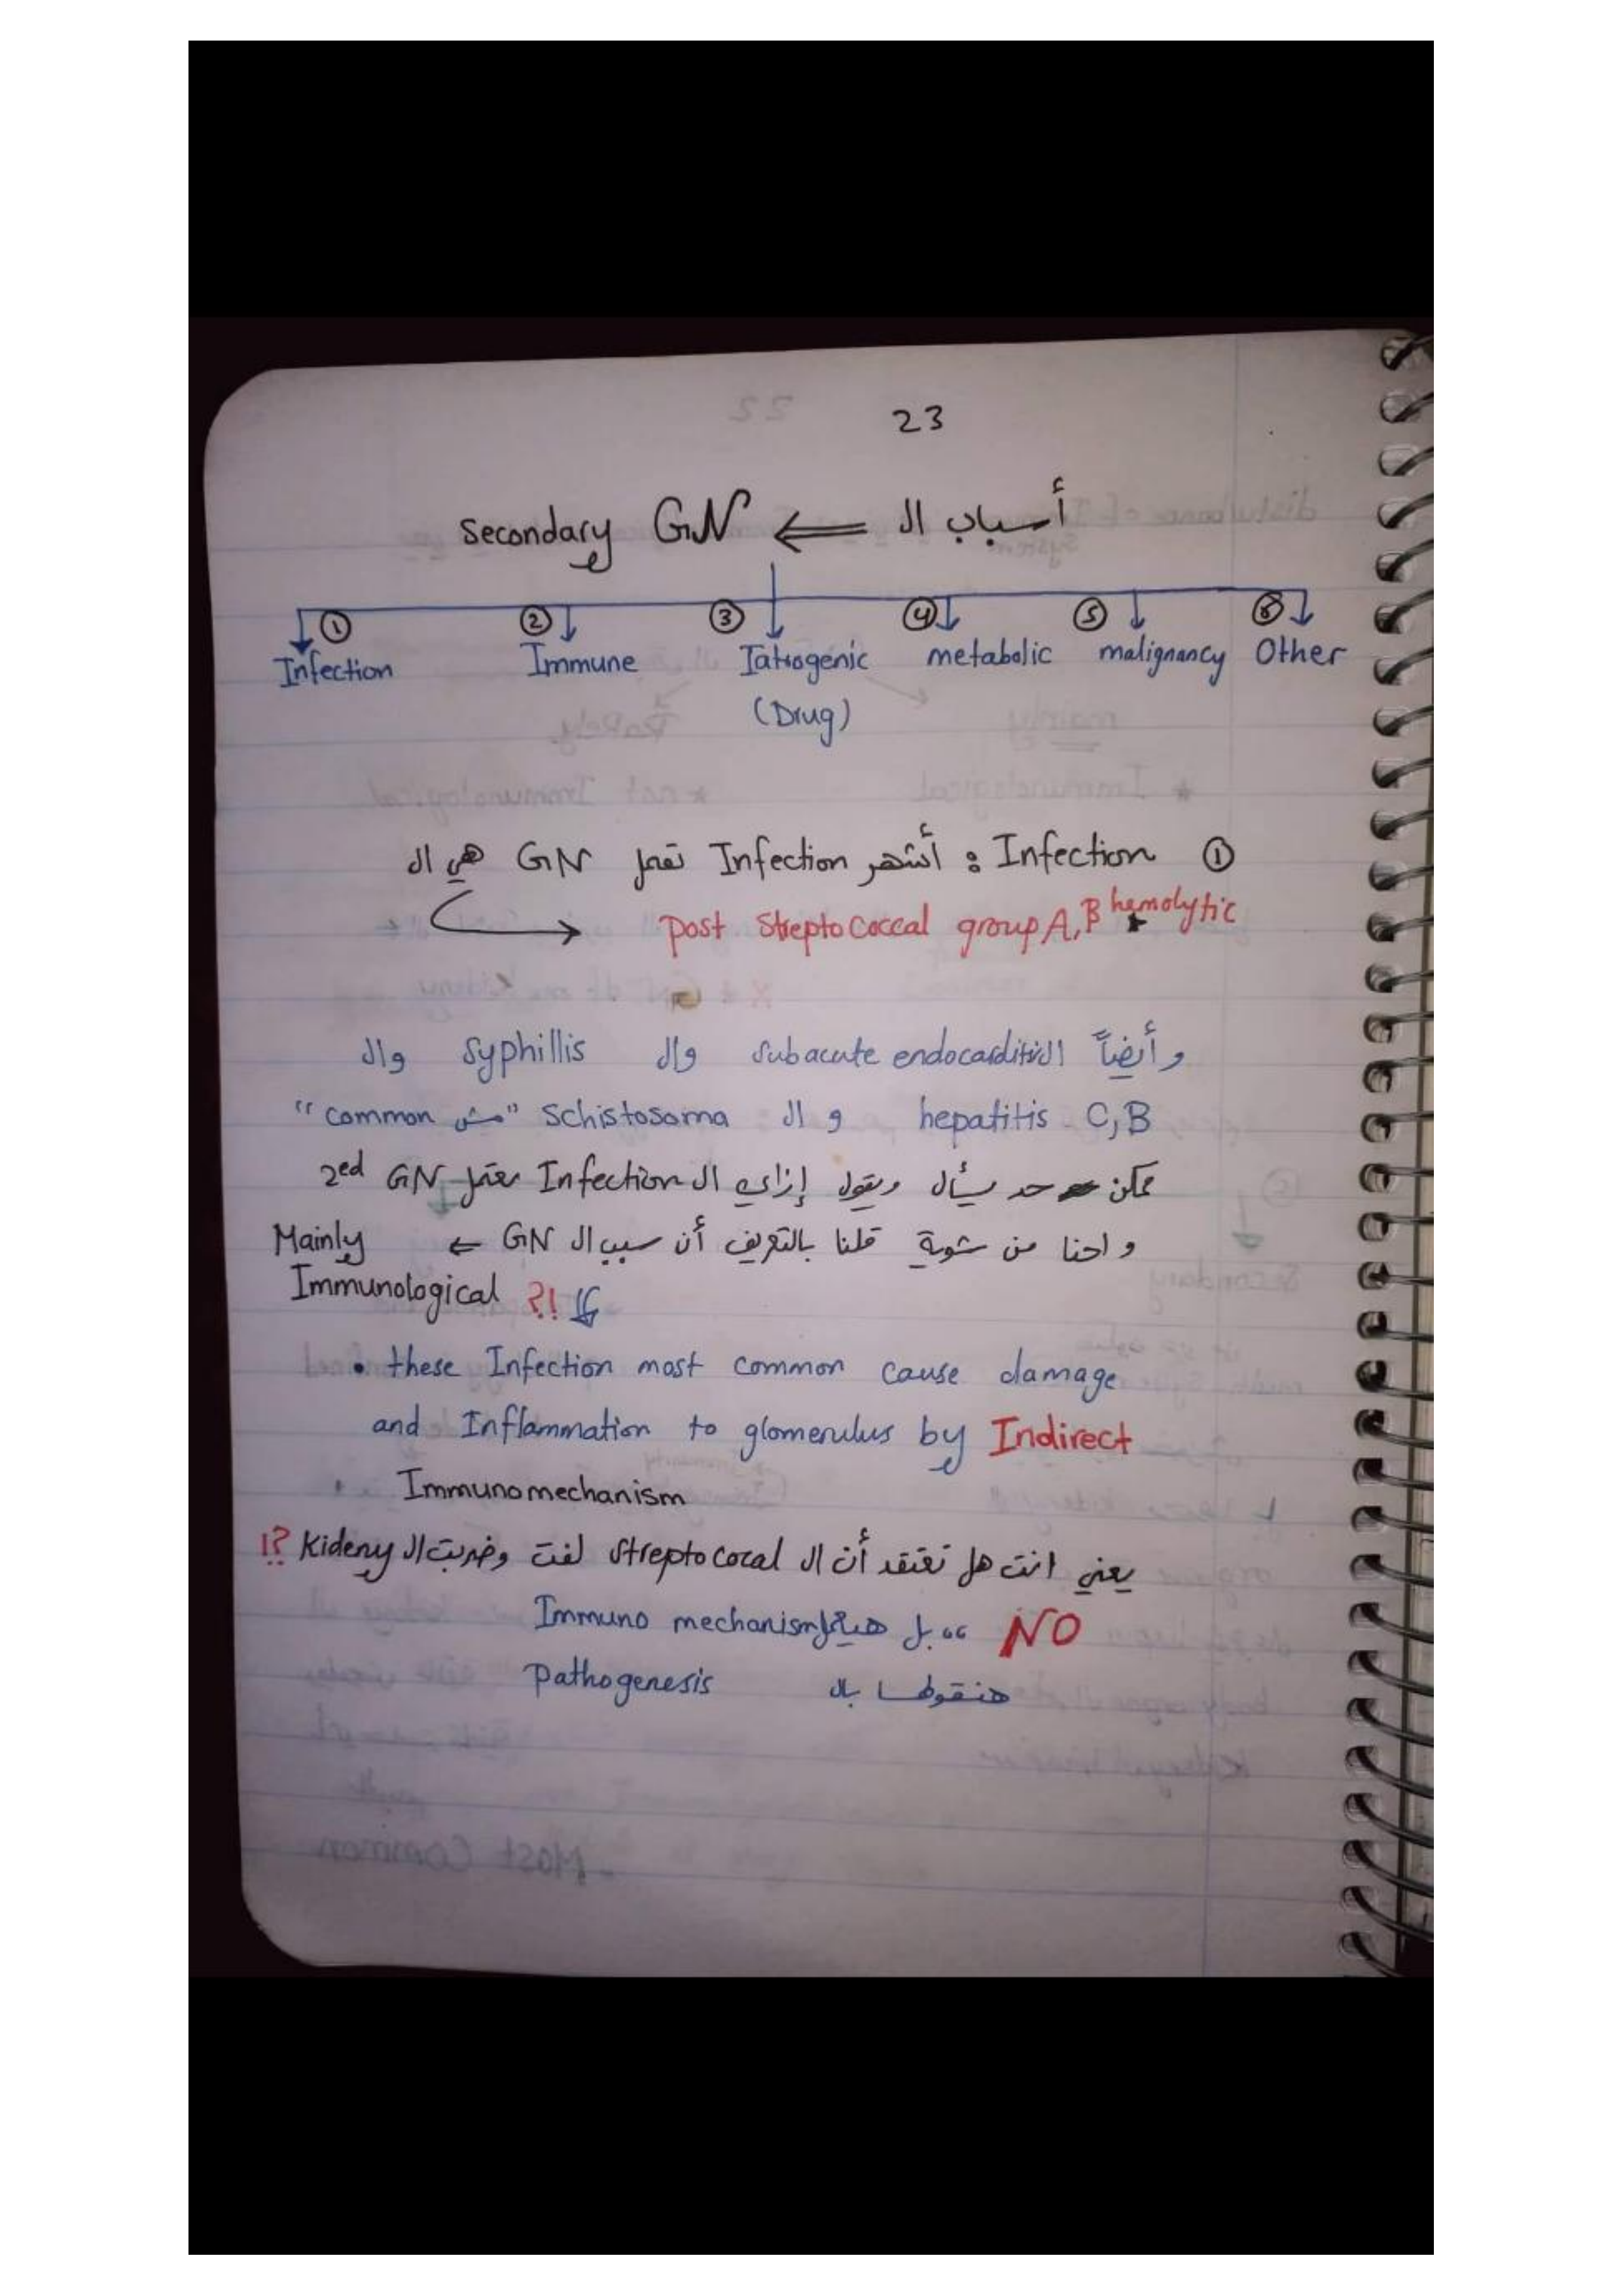 23
أسباب ال ⇐ secondary GN
① Infection ② Immune ③ Iatrogenic ④ metabolic ⑤ malignancy ⑥ Other
(Drug)
① Infection : أشهر Infection تعمل GN هي ال
post Strepto coccal group A, B hemolytic
وأيضاً ال subacute endocarditis وال syphillis وال
hepatitis C,B و ال Schistosoma "مش common"
ممكن حد يسأل ويقول إزاي ال Infection بتعمل 2ed GN
و احنا من شوية قلنا بالتعريف أن سبب ال GN ⇐ Mainly
Immunological ?!
• these Infection most common cause damage
and Inflammation to glomerulus by Indirect
Immunomechanism
يعني انت هل تعتقد أن ال streptococal لفت وضربت ال Kideny ?!
NO "بل هيعمل Immuno mechanism
هنقولها بال Pathogenesis